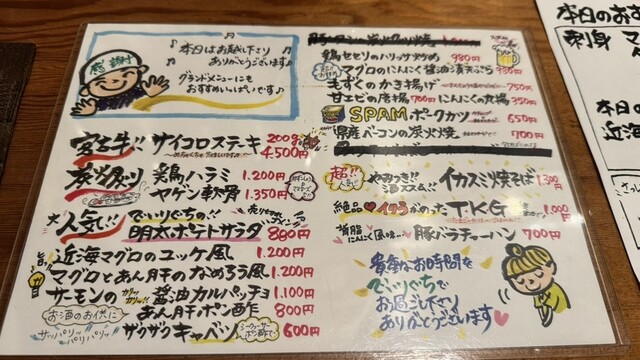 感謝
本日はお越し下さり
ありがとうございます♪
グランドメニューにも
おすすめいっぱいです♪
宮古牛!! サイコロステーキ 200g 4.500円
炭火炙り 鶏ハラミ 1.200円
ヤゲン軟骨 1.350円
大人気!! でいりぐちの!!
明太ポテトサラダ 880円
旨! 近海マグロのユッケ風 1.200円
マグロとあん肝のなめろう風 1.200円
サーモンの 醤油カルパッチョ 1.100円
お酒のお供に あん肝ポン酢 800円
サッパリッ パリッ ザクザクキャベツ 600円
シークヮーサーポン酢で
鶏セセリのハリッサ炒め 980円
マグロのにんにく醤油漬天ぷら 980円
もずくのかき揚げ 750円
甘エビの唐揚 700円 にんにくの丸揚 350円
SPAM ポークカツ 650円
県産ベーコンの炭火焼 700円
超!! 人気 イカスミ焼そば 1.300円
絶品 イクラがのった TKG 1.000円
豚バラチャーハン 700円
貴重なお時間を
でいりぐちで
お過ごし下さり
ありがとうございます
本日のおす
刺身 マ
本日の
近海